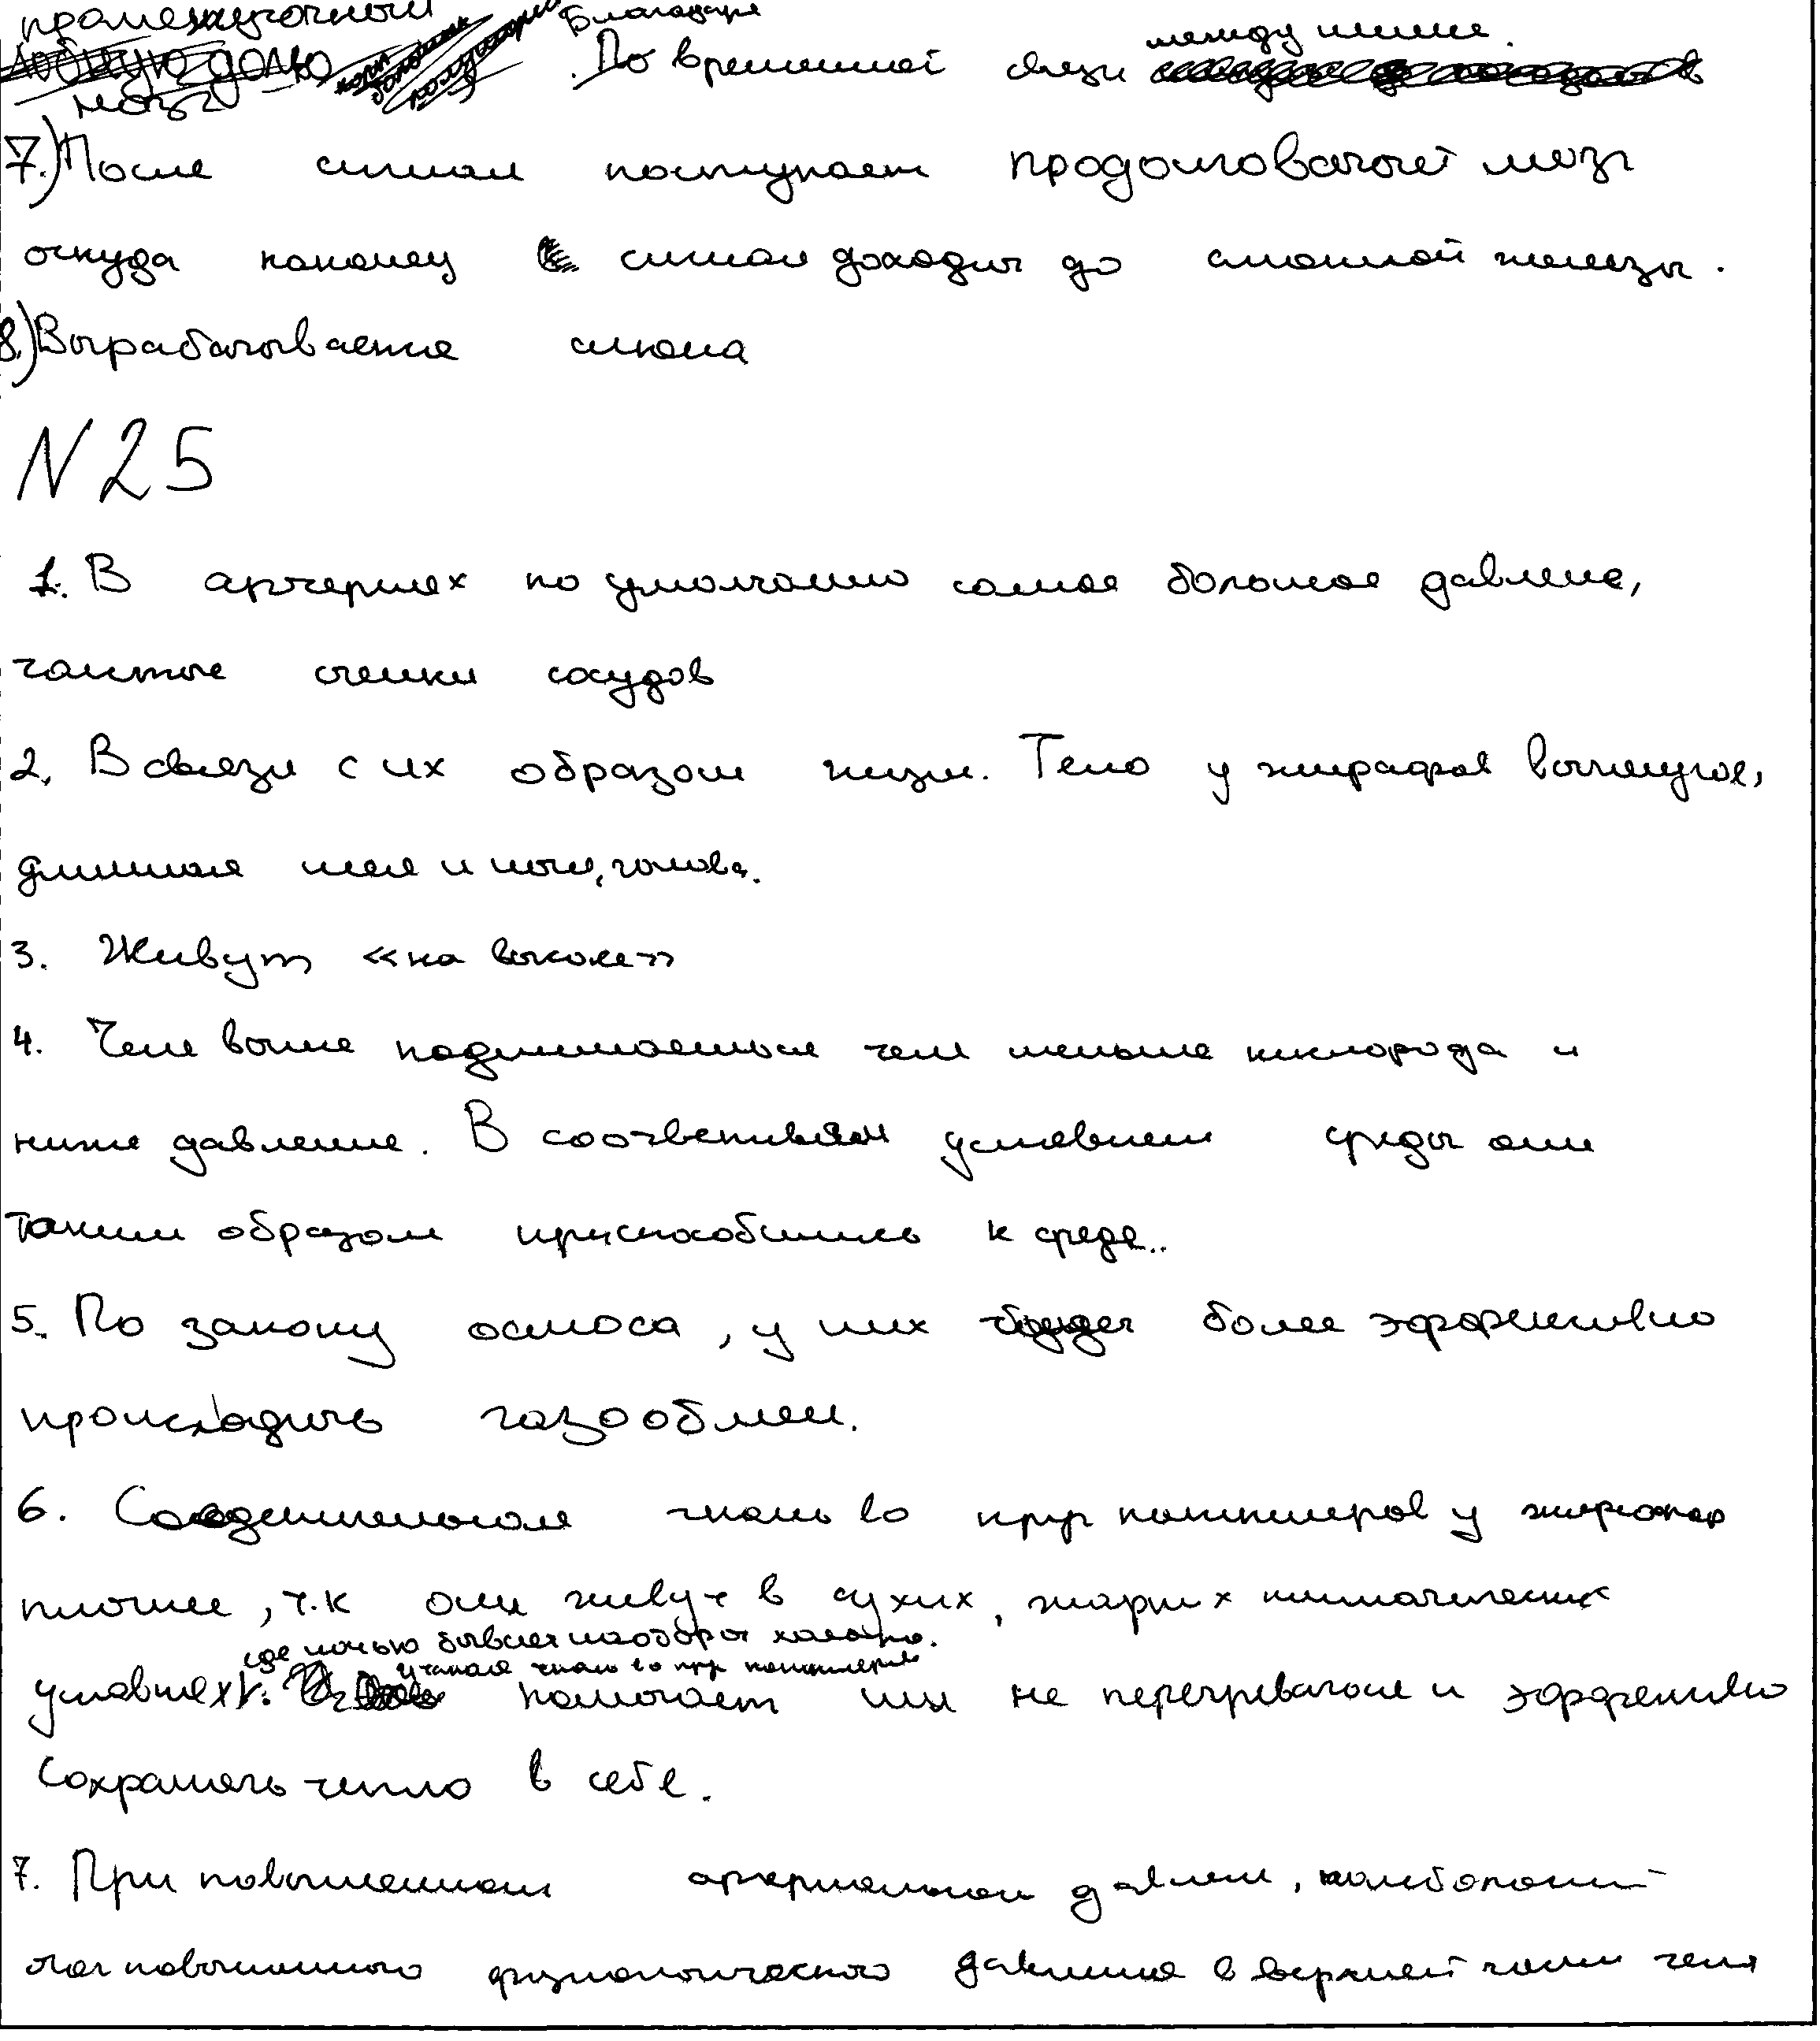 промежуточный
лобную долю Благодаря между ними.
мозг По временной связи
7.) После сигнал поступает продолговатый мозг
откуда наконец сигнал доходит до слюнной железы.
8.) Вырабатывается слюна
N25
1. В артериях по умолчанию самое большое давление,
толстые стенки сосудов
2. В связи с их образом жизни. Тело у жирафов вытянутое,
длинная шея и ноги, голова.
3. Живут «на высоте»
4. Чем выше поднимаешься тем меньше кислорода и
ниже давление. В соответствии условием среды они
таким образом приспособились к среде..
5. По закону осмоса, у них будет более эффективно
происходить газообмен.
6. Соединительная ткань во пр-р капилляров у жирафов
плотнее, т.к они живут в сухих, жарких климатических
где ночью бывает наоборот холодно.
условиях. такая ткань во пр-р капилляров помогает им не перегреваться и эффективно
сохранять тепло в себе.
7. При повышенном артериальном давлении,
повышенного физиологического давления в верхней части тела